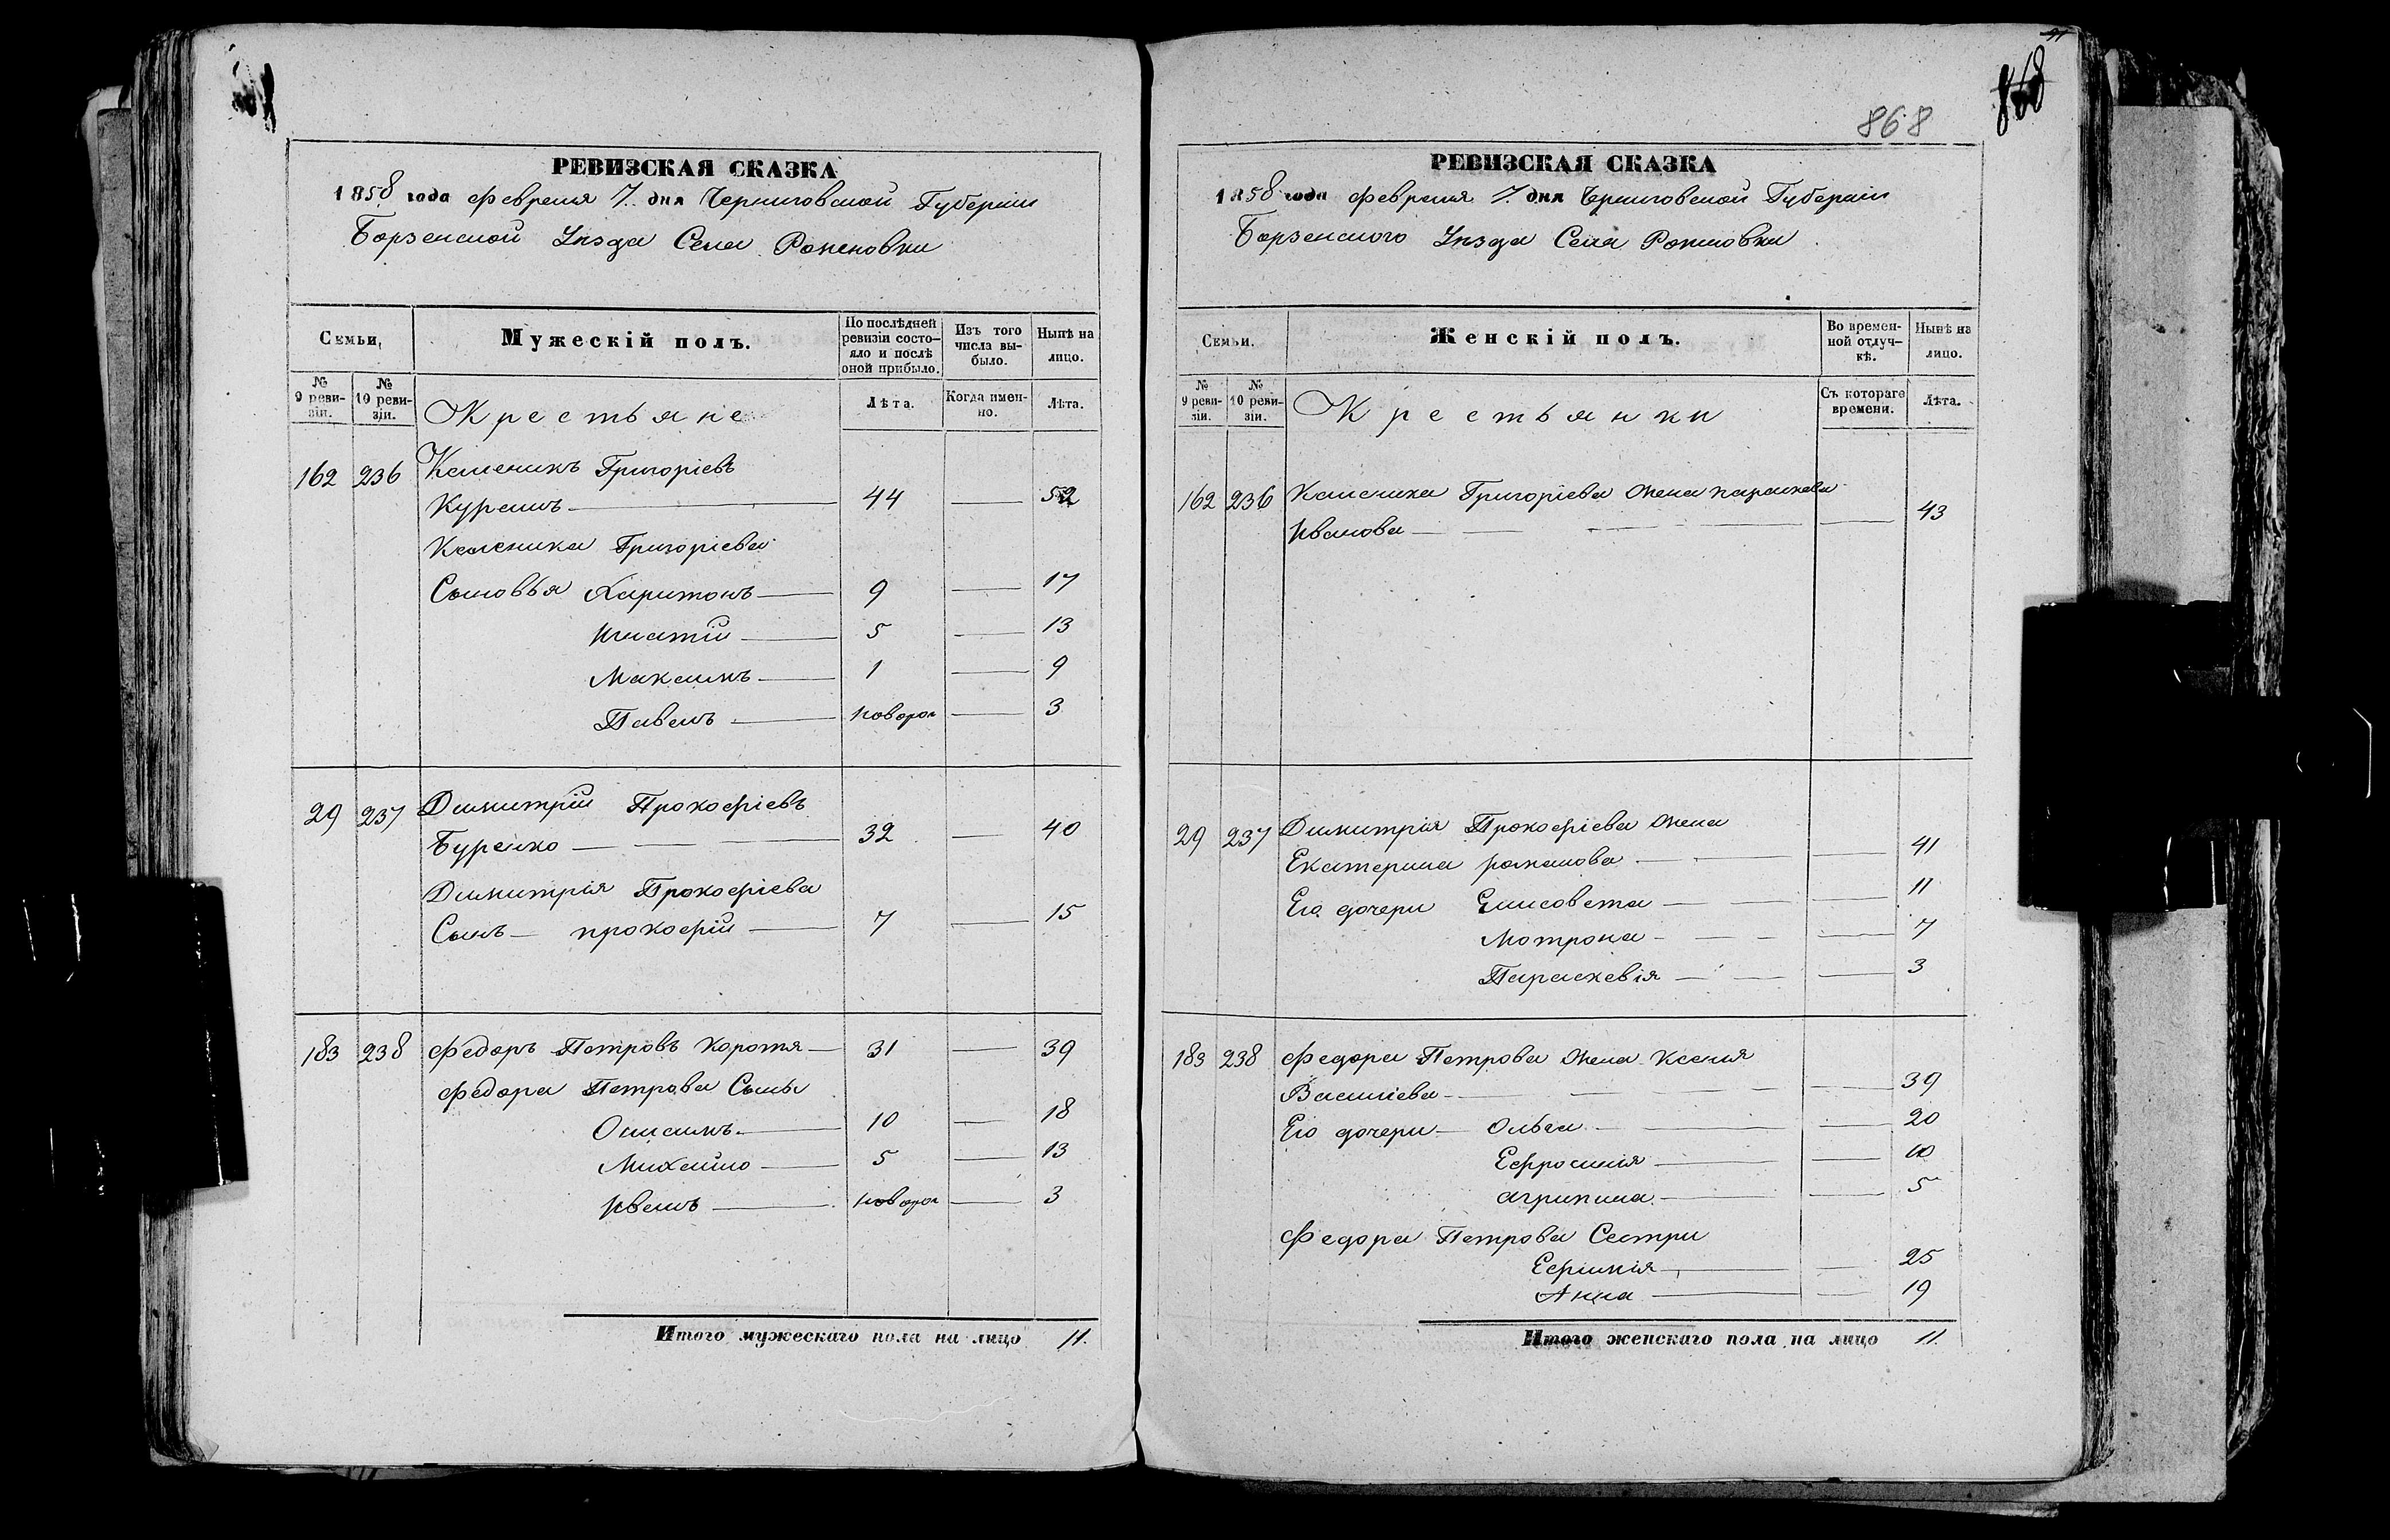 РЕВИЗСКАЯ СКАЗКА
1858 года февраля 7 дня Черниговской Губерніи
Борзенской Уѣзда Села Роженовки
Семьи,
Мужескій полъ.
По послѣдней ревизіи состо-
яло и послѣ
оной прибыло.
Изъ того
числа вы-
было.
Нынѣ на
лицо.
№
9 реви-
зіи.
№
10 реви-
зіи.
Крестьяне
Лѣта.
Когда имен-
но.
Лѣта.
162 236 Каленикъ Григоріевъ
44 — 52
Каленика Григоріева
Сыновья Харитонъ — 9 — 17
Игнатій — 5 — 13
Максимъ — 1 — 9
Павелъ — новорож — 3
29 237 Димитрій Прокофіевъ
Бурейко — 32 — 40
Димитрія Прокофіева
Сынъ — прокофій — 7 — 15
183 238 Федоръ Петровъ Коротя — 31 — 39
Федора Петрова Сыны
Онисимъ — 10 — 18
Михайло — 5 — 13
Иванъ — новорож — 3
Итого мужескаго пола на лицо 11.
868
868
РЕВИЗСКАЯ СКАЗКА
1858 года февраля 7 дня Черниговской Губерніи
Борзенского Уѣзда Села Роженовки
Семьи.
Женскій полъ.
Во времен-
ной отлуч-
кѣ.
Нынѣ на
лицо.
№
9 реви-
зіи.
№
10 реви-
зіи.
Крестьянки
Съ котораго
времени.
Лѣта.
162 236 Каленика Григоріева жена параскева
Иванова — 43
29 237 Димитрія Прокофіева жена
Екатерина романова — 41
Его дочери Елисовета — 11
Мотрона — 7
Параскевія — 3
183 238 Федора Петрова жена Ксенія
Василіева — 39
Его дочери — Ольга — 20
Ефросинія — 10
агрипина — 5
Федора Петрова Сестри
Ефимія — 25
Анна — 19
Итого женскаго пола на лицо 11.